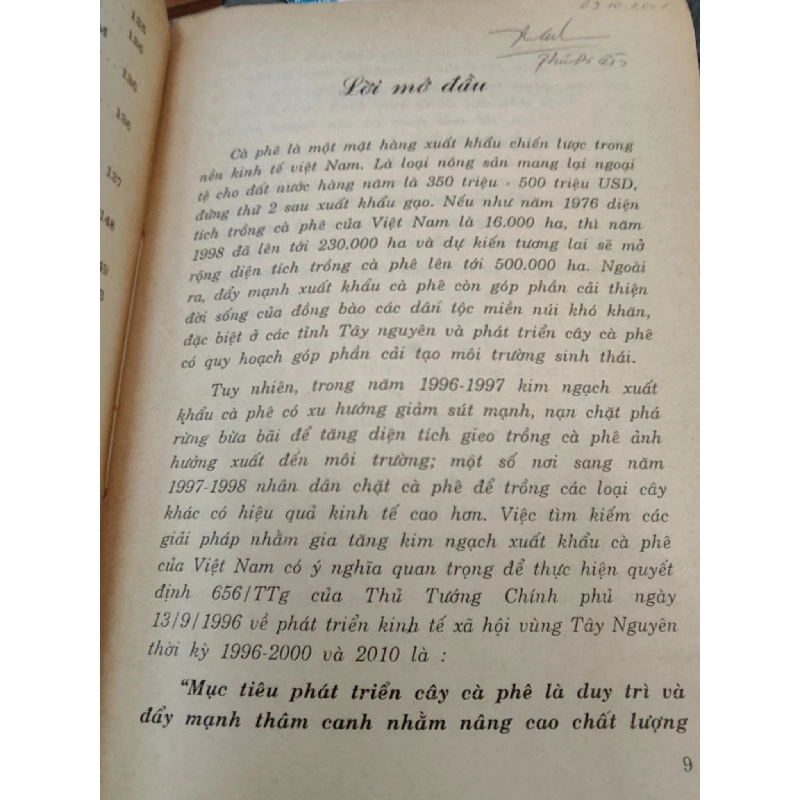 135
136
136
136
137
148
Lời mở đầu
Cà phê là một mặt hàng xuất khẩu chiến lược trong
nền kinh tế việt Nam. Là loại nông sản mang lại ngoại
tệ cho đất nước hàng năm là 350 triệu - 500 triệu USD,
đứng thứ 2 sau xuất khẩu gạo. Nếu như năm 1976 diện
tích trồng cà phê của Việt Nam là 16.000 ha, thì năm
1998 đã lên tới 230.000 ha và dự kiến tương lai sẽ mở
rộng diện tích trồng cà phê lên tới 500.000 ha. Ngoài
ra, đẩy mạnh xuất khẩu cà phê còn góp phần cải thiện
đời sống của đồng bào các dân tộc miền núi khó khăn,
đặc biệt ở các tỉnh Tây nguyên và phát triển cây cà phê
có quy hoạch góp phần cải tạo môi trường sinh thái.
Tuy nhiên, trong năm 1996-1997 kim ngạch xuất
khẩu cà phê có xu hướng giảm sút mạnh, nạn chặt phá
rừng bừa bãi để tăng diện tích gieo trồng cà phê ảnh
hưởng xuất đến môi trường; một số nơi sang năm
1997-1998 nhân dân chặt cà phê để trồng các loại cây
khác có hiệu quả kinh tế cao hơn. Việc tìm kiếm các
giải pháp nhằm gia tăng kim ngạch xuất khẩu cà phê
của Việt Nam có ý nghĩa quan trọng để thực hiện quyết
định 656/TTg của Thủ Tướng Chính phủ ngày
13/9/1996 về phát triển kinh tế xã hội vùng Tây Nguyên
thời kỳ 1996-2000 và 2010 là :
“Mục tiêu phát triển cây cà phê là duy trì và
đẩy mạnh thâm canh nhằm nâng cao chất lượng
9